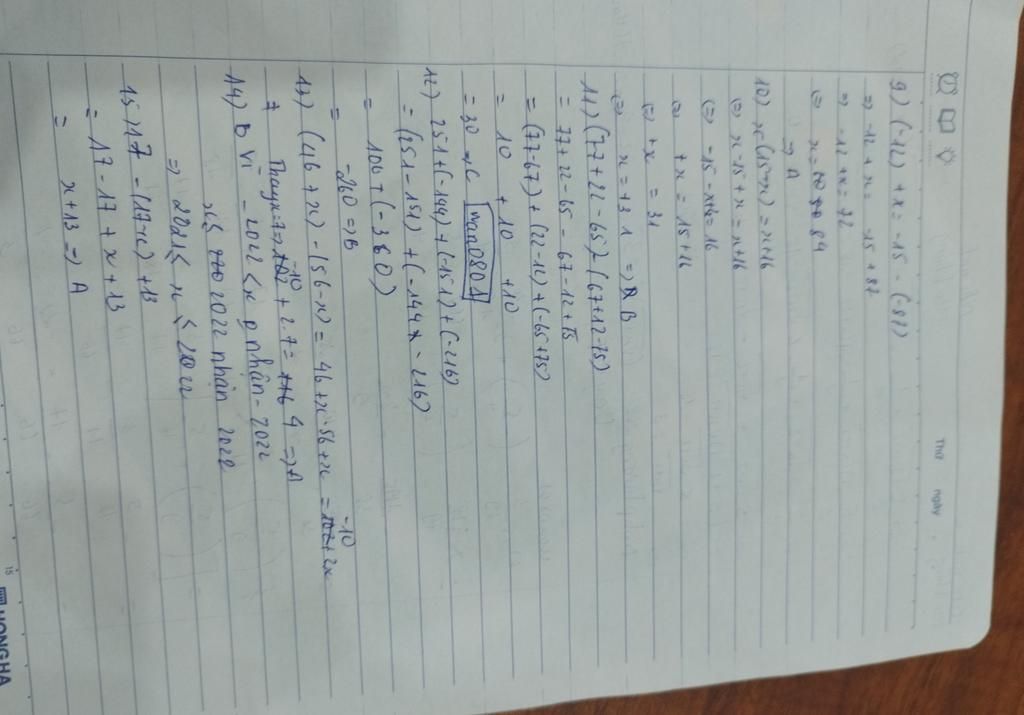 Thứ
ngày
9) (-12) + x = -15 - (-87)
=> -12 + x = -15 + 87
=> -12 + x = 72
(=) x = 84
=> A
10) x - (15 - x) = x + 16
(=) x - 15 + x = x + 16
(=) -15 - x + x = 16
(=) + x = 15 + 16
(=) + x = 31
(=) x = +31 => B
11) (77 + 22 - 65) - (67 + 12 - 75)
= 77 + 22 - 65 - 67 - 12 + 75
= (77 - 67) + (22 - 12) + (-65 + 75)
= 10 + 10 + 10
= 30 => C
man0801
12) 251 + (-144) + (-151) + (-216)
= (251 - 151) + (-144 - 216)
= 100 + (-360)
= -260 => B
13) (46 + x) - (56 - x) = 46 + x - 56 + x = -10 + 2x
Thay x = 7 => -10 + 2.7 = 4 => A
14) B Vì -2022 < x nhận -2022
x ≤ 2022 nhận 2022
=> 2021 ≤ x ≤ 2022
15) 17 - (17 - x) + 13
= 17 - 17 + x + 13
= x + 13 => A
15
HONG HA